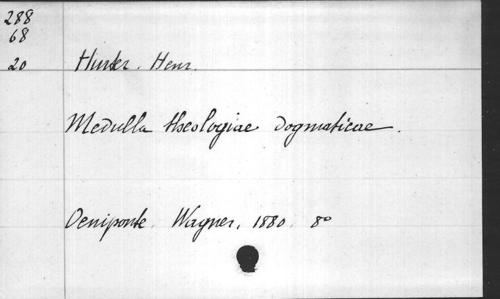 288
68
20 Hurter. Henr.
Medulla theologiae dogmaticae.
Oeniponte. Wagner, 1880. 8°